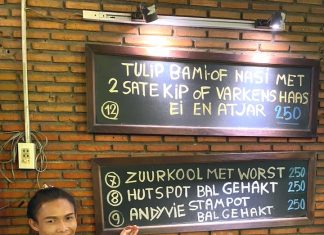 TULIP BAMI OF NASI MET
2 SATE KIP OF VARKENS HAAS
12 EI EN ATJAR 250
7 ZUURKOOL MET WORST 250
8 HUTSPOT BAL GEHAKT 250
9 ANDYVIE STAMPOT
BAL GEHAKT 250